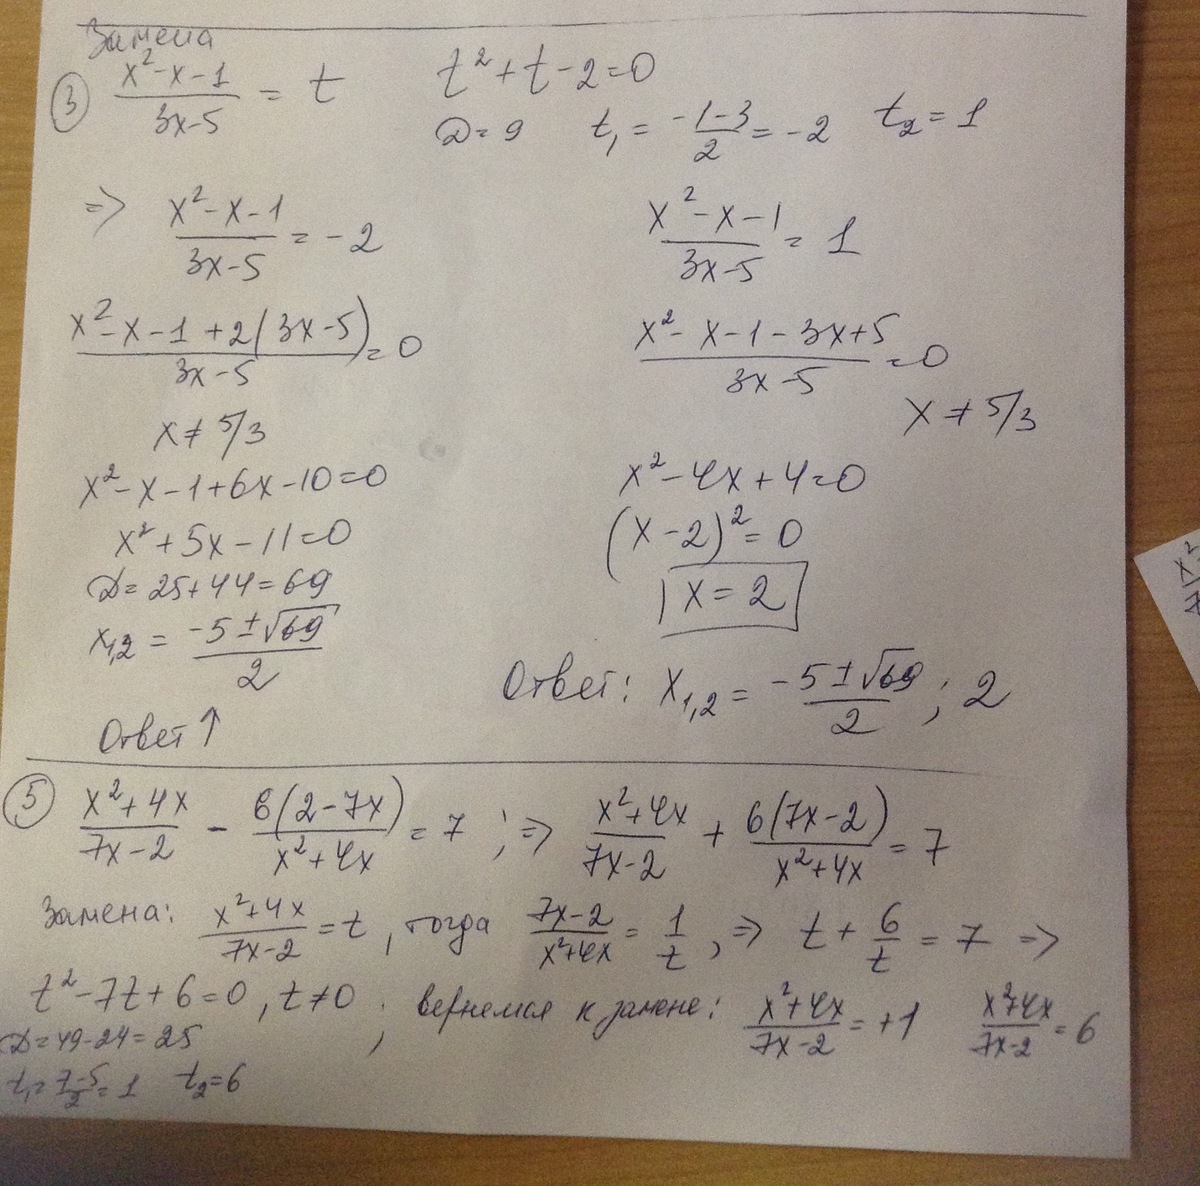 Замена
③ (x²-x-1)/(3x-5) = t   t²+t-2=0
D=9   t₁ = (-1-3)/2 = -2   t₂=1
=> (x²-x-1)/(3x-5) = -2   (x²-x-1)/(3x-5) = 1
(x²-x-1+2(3x-5))/(3x-5) = 0   (x²-x-1-3x+5)/(3x-5) = 0
x≠5/3   x≠5/3
x²-x-1+6x-10=0   x²-4x+4=0
x²+5x-11=0   (x-2)²=0
D=25+44=69   x=2
x₁,₂ = (-5±√69)/2
Ответ: x₁,₂ = (-5±√69)/2 ; 2
Ответ ↑
⑤ (x²+4x)/(7x-2) - 6(2-7x)/(x²+4x) = 7 ; => (x²+4x)/(7x-2) + 6(7x-2)/(x²+4x) = 7
Замена: (x²+4x)/(7x-2) = t, тогда (7x-2)/(x²+4x) = 1/t, => t + 6/t = 7 =>
t²-7t+6=0, t≠0 ; вернемся к замене: (x²+4x)/(7x-2) = +1   (x²+4x)/(7x-2) = 6
D=49-24=25
t₁=(7-5)/2=1   t₂=6